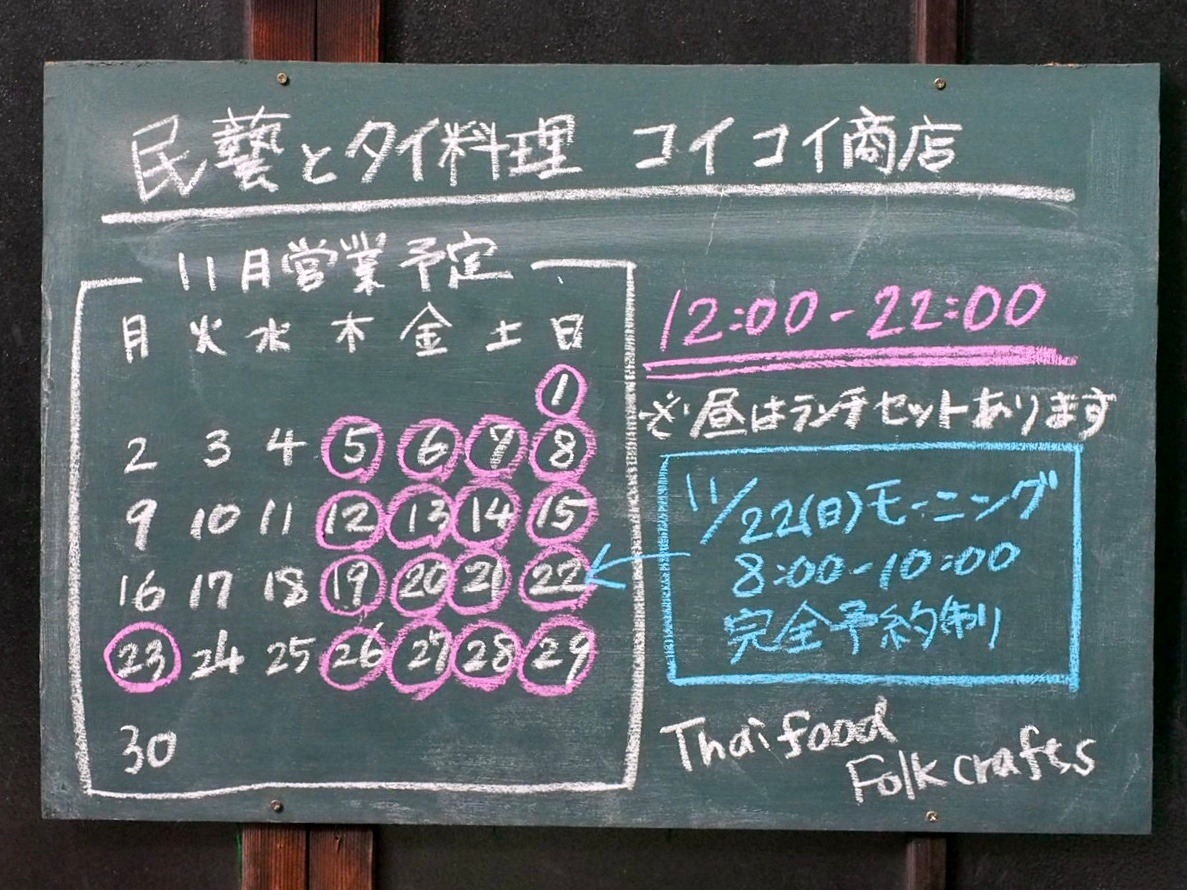 民藝とタイ料理 コイコイ商店
11月営業予定
月 火 水 木 金 土 日
1
2 3 4 5 6 7 8
9 10 11 12 13 14 15
16 17 18 19 20 21 22
23 24 25 26 27 28 29
30
12:00-22:00
※昼はランチセットあります
11/22(日)モーニング
8:00-10:00
完全予約制
Thai food
Folk crafts